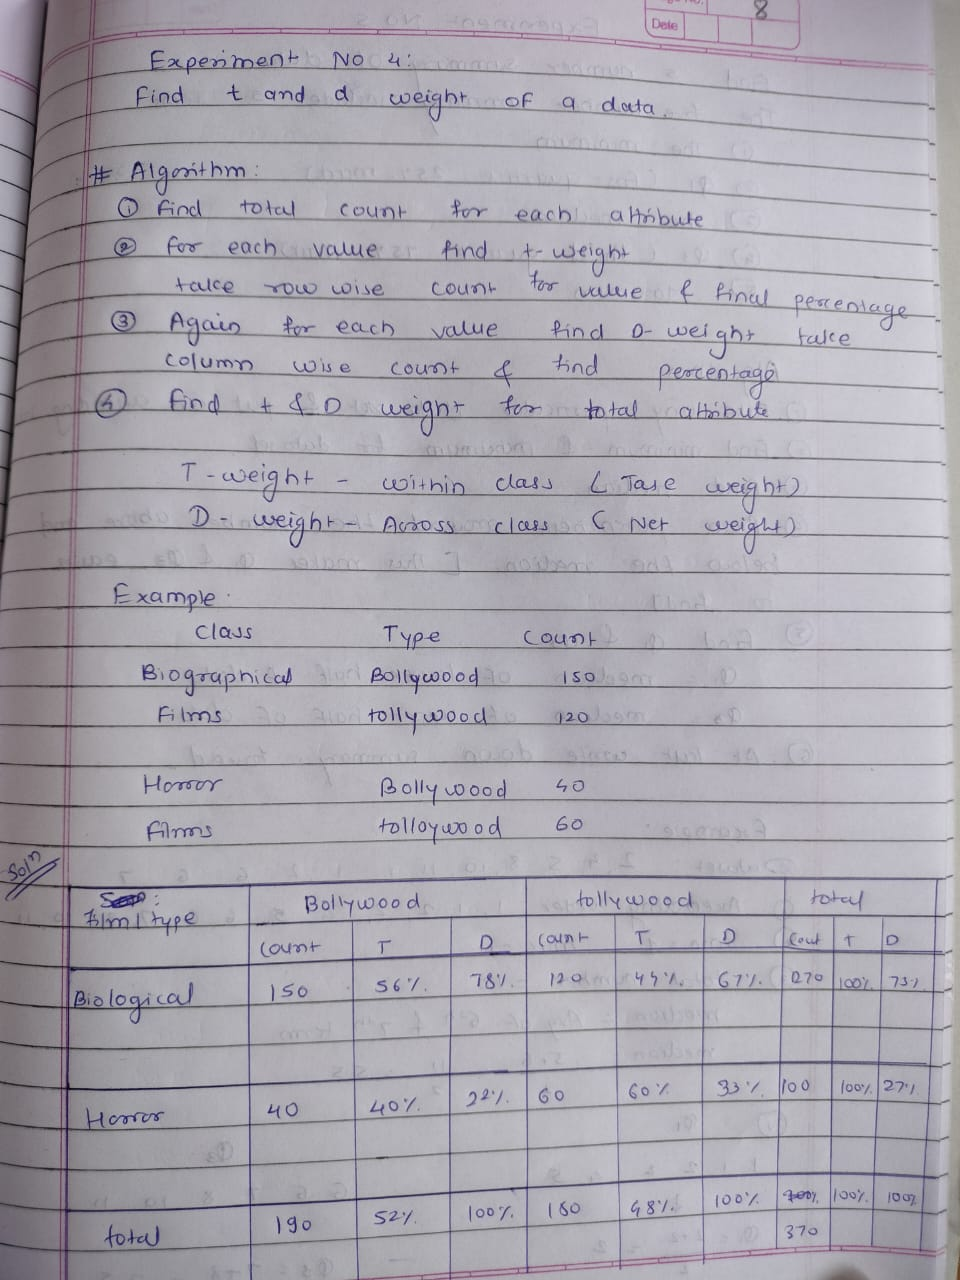 8
Date
Experiment No 4:
Find t and d weight of a data.
# Algorithm:
① Find total count for each attribute
② for each value find t-weight
take row wise count for value & final percentage
③ Again for each value find D-weight take
column wise count & find percentage
④ Find t & D weight for total attribute
T-weight - within class ( Tase weight)
D-weight - Across class ( Net weight)
Example.
Class Type Count
Biographical Bollywoood 150
Films tollywood 120
Horror Bollywood 40
Films tolloywood 60
Soln
Film/type Bollywood tollywood total
Count T D Count T D Cout T D
Biological 150 56% 78% 120 44% 67% 270 100% 73%
Horror 40 40% 22% 60 60% 33% 100 100% 27%
total 190 52% 100% 180 48% 100% 100% 100% 100%
370